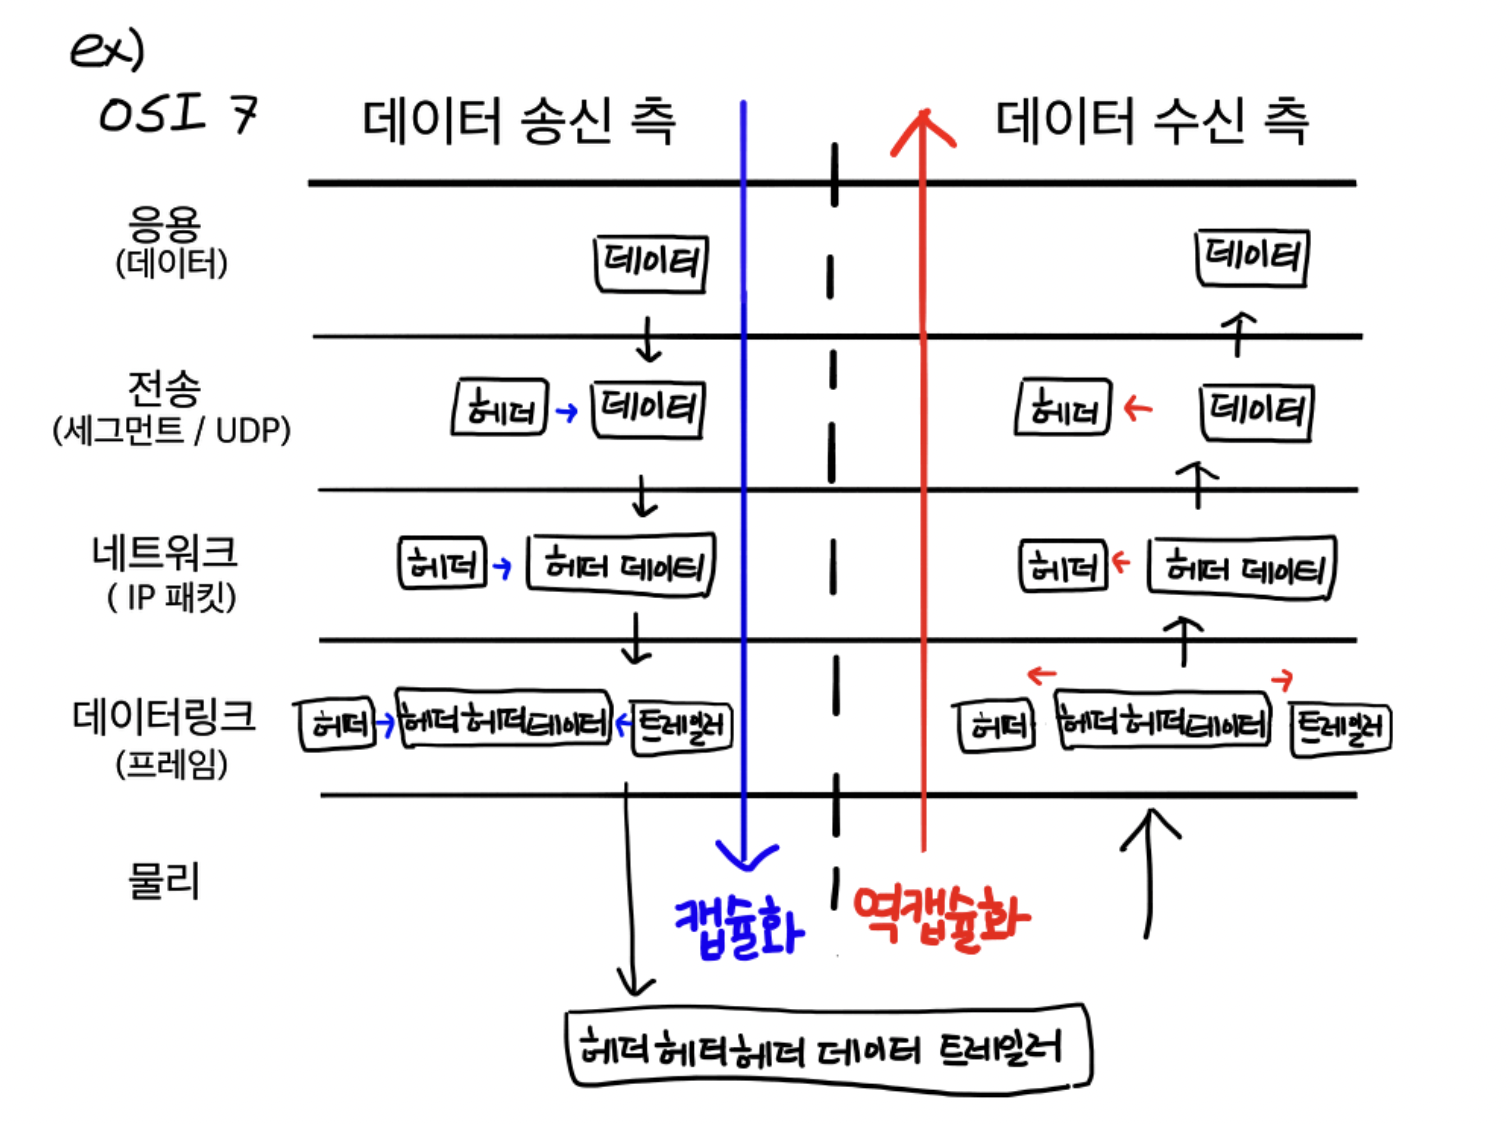 ex)
OSI 7
데이터 송신 측
데이터 수신 측
응용
(데이터)
데이터
데이터
전송
(세그먼트 / UDP)
헤더 → 데이터
헤더 ← 데이터
네트워크
( IP 패킷)
헤더 → 헤더 데이터
헤더 ← 헤더 데이터
데이터링크
(프레임)
헤더 → 헤더 헤더 데이터 ← 트레일러
헤더 헤더 헤더 데이터 트레일러
물리
캡슐화
역캡슐화
헤더 헤터 헤더 데이터 트레일러